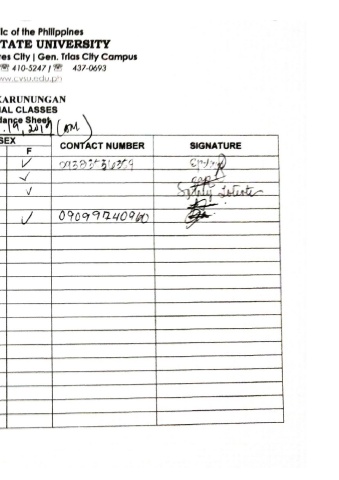 lic of the Philippines
STATE UNIVERSITY
res City | Gen. Trias City Campus
☏ 410-5247 | ☏ 437-0693
www.cvsu.edu.ph
KARUNUNGAN
IAL CLASSES
dance Sheet
19, 2019 (AM)
SEX
F CONTACT NUMBER SIGNATURE
✓
✓
✓
✓ 09099740960